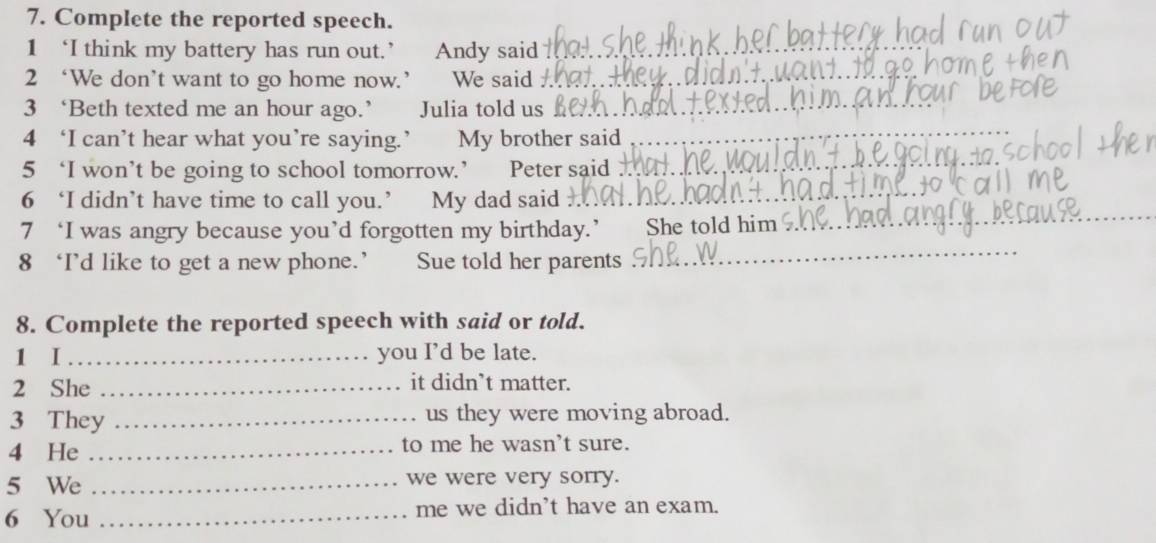 7. Complete the reported speech.
1 ‘I think my battery has run out.’ Andy said that she think her battery had run out
2 ‘We don’t want to go home now.’ We said that they didn't want to go home then
3 ‘Beth texted me an hour ago.’ Julia told us Beth hdd texted him an hour before
4 ‘I can’t hear what you’re saying.’ My brother said
5 ‘I won’t be going to school tomorrow.’ Peter said that he wouldn't be going to school then
6 ‘I didn’t have time to call you.’ My dad said that he hadn't had time to call me
7 ‘I was angry because you’d forgotten my birthday.’ She told him she had angry because
8 ‘I’d like to get a new phone.’ Sue told her parents she w
8. Complete the reported speech with said or told.
1 I ........ you I’d be late.
2 She ........ it didn’t matter.
3 They ........ us they were moving abroad.
4 He ........ to me he wasn’t sure.
5 We ........ we were very sorry.
6 You ........ me we didn’t have an exam.